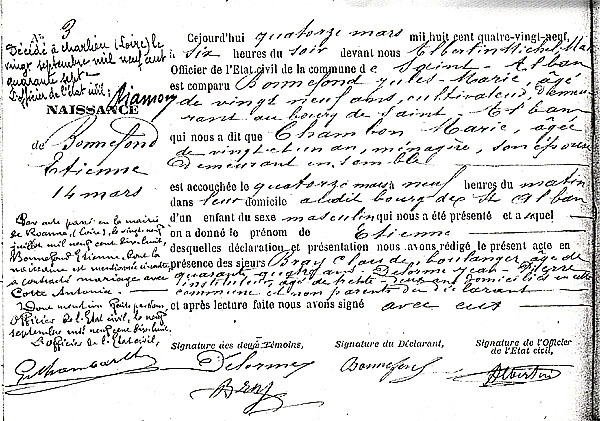 N° 3
Décédé à Charlieu (Loire) le
vingt septembre mil neuf cent
quarante sept
L'officier de l'état civil:
NAISSANCE
de Bonnefond
Etienne
14 mars
Par acte passé en la mairie
de Roanne, (Loire), le vingt neuf
juillet mil neuf cent dix huit,
Bonnefond Etienne, dont la
naissance est mentionnée ci-contre
a contracté mariage avec
Cotte Antonia.
Dont mention faite par nous
Officier de l'Etat civil, le neuf
septembre mil neuf cent dix huit.
L'officier de l'Etat civil,
Cejourd'hui quatorze mars mil huit cent quatre-vingt-neuf,
à six heures du soir devant nous Albertin Michel, Maire
Officier de l'Etat civil de la commune de Saint-Alban
est comparu Bonnefond Jules-Marie, âgé
de vingt neuf ans, cultivateur, demeu-
rant au bourg de Saint-Alban
qui nous a dit que Chambon Marie, âgée
de vingt et un an, ménagère, son épouse
demeurant ensemble
est accouchée le quatorze mars neuf heures du matin
dans leur domicile audit bourg de St Alban
d'un enfant du sexe masculin qui nous a été présenté et auquel
on a donné le prénom de Etienne
desquelles déclaration et présentation nous avons rédigé le présent acte en
présence des sieurs Bray Claude, boulanger, âgé de
quarante quatre ans, Delorme Jean-Pierre
instituteur, âgé de trente-deux ans domiciliés en cette
commune et non parents du déclarant
et après lecture faite nous avons signé avec eux
Signature des deux Témoins, Signature du Déclarant, Signature de l'Officier
de l'Etat civil,
Delorme Bonnefond Albertin
Bray